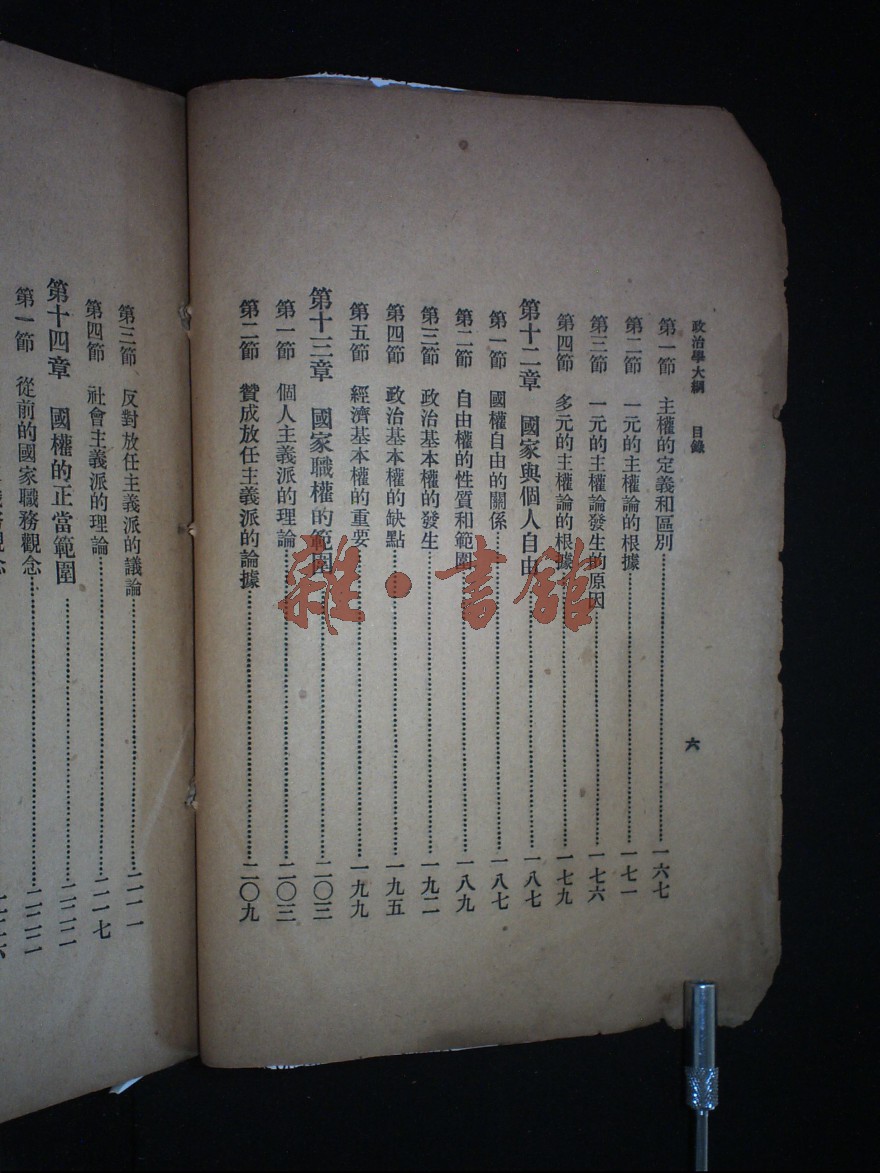 政治學大綱 目錄 六
第一節 主權的定義和區別 一六七
第二節 一元的主權論的根據 一七一
第三節 一元的主權論發生的原因 一七六
第四節 多元的主權論的根據 一七九
第十二章 國家與個人自由 一八七
第一節 國權自由的關係 一八七
第二節 自由權的性質和範圍 一八九
第三節 政治基本權的發生 一九二
第四節 政治基本權的缺點 一九五
第五節 經濟基本權的重要 一九九
第十三章 國家職權的範圍 二〇三
第一節 個人主義派的理論 二〇三
第二節 贊成放任主義派的論據 二〇九
第三節 反對放任主義派的議論 二一一
第四節 社會主義派的理論 二一七
第十四章 國權的正當範圍 二二二
第一節 從前的國家職務觀念 二二二
雜·書館